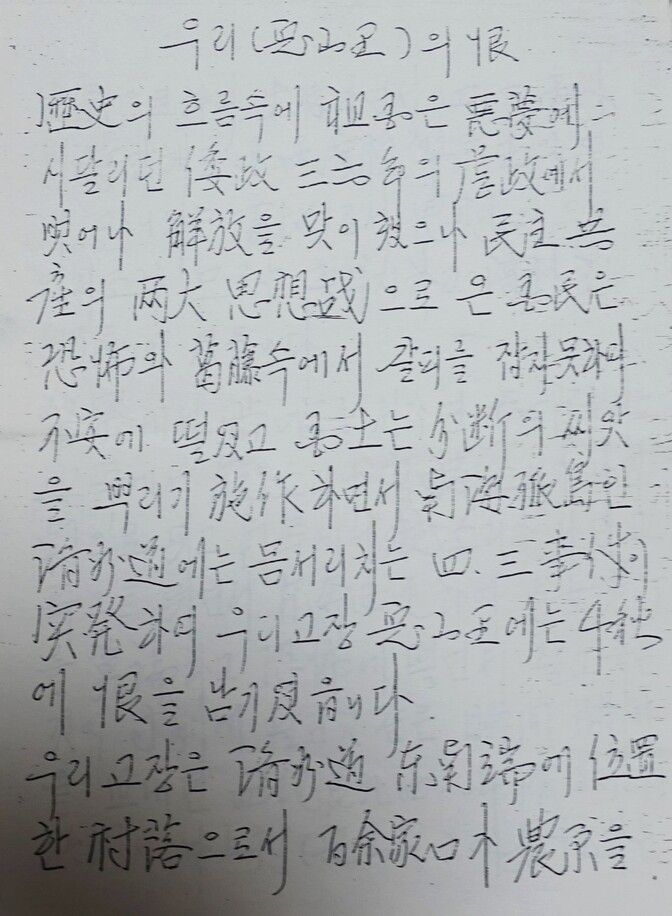 우리(兎山里)의 恨
歷史의 흐름속에 祖国은 悪夢에
시달리던 倭政 三六年의 虐政에서
벗어나 解放을 맞이했으나 民主 共
産의 両大 思想战으로 온 国民은
恐怖와 葛藤속에서 갈피를 잡지못하며
不安에 떨었고 国土는 分断의 씨앗
을 뿌리기 施作하면서 南海孤島인
済州道에는 몸서리치는 四.三事件이
突発하여 우리고장 兎山里에는 千秋
에 恨을 남기었읍니다
우리고장은 済州道 东南端에 位置
한 村落으로서 百余家口가